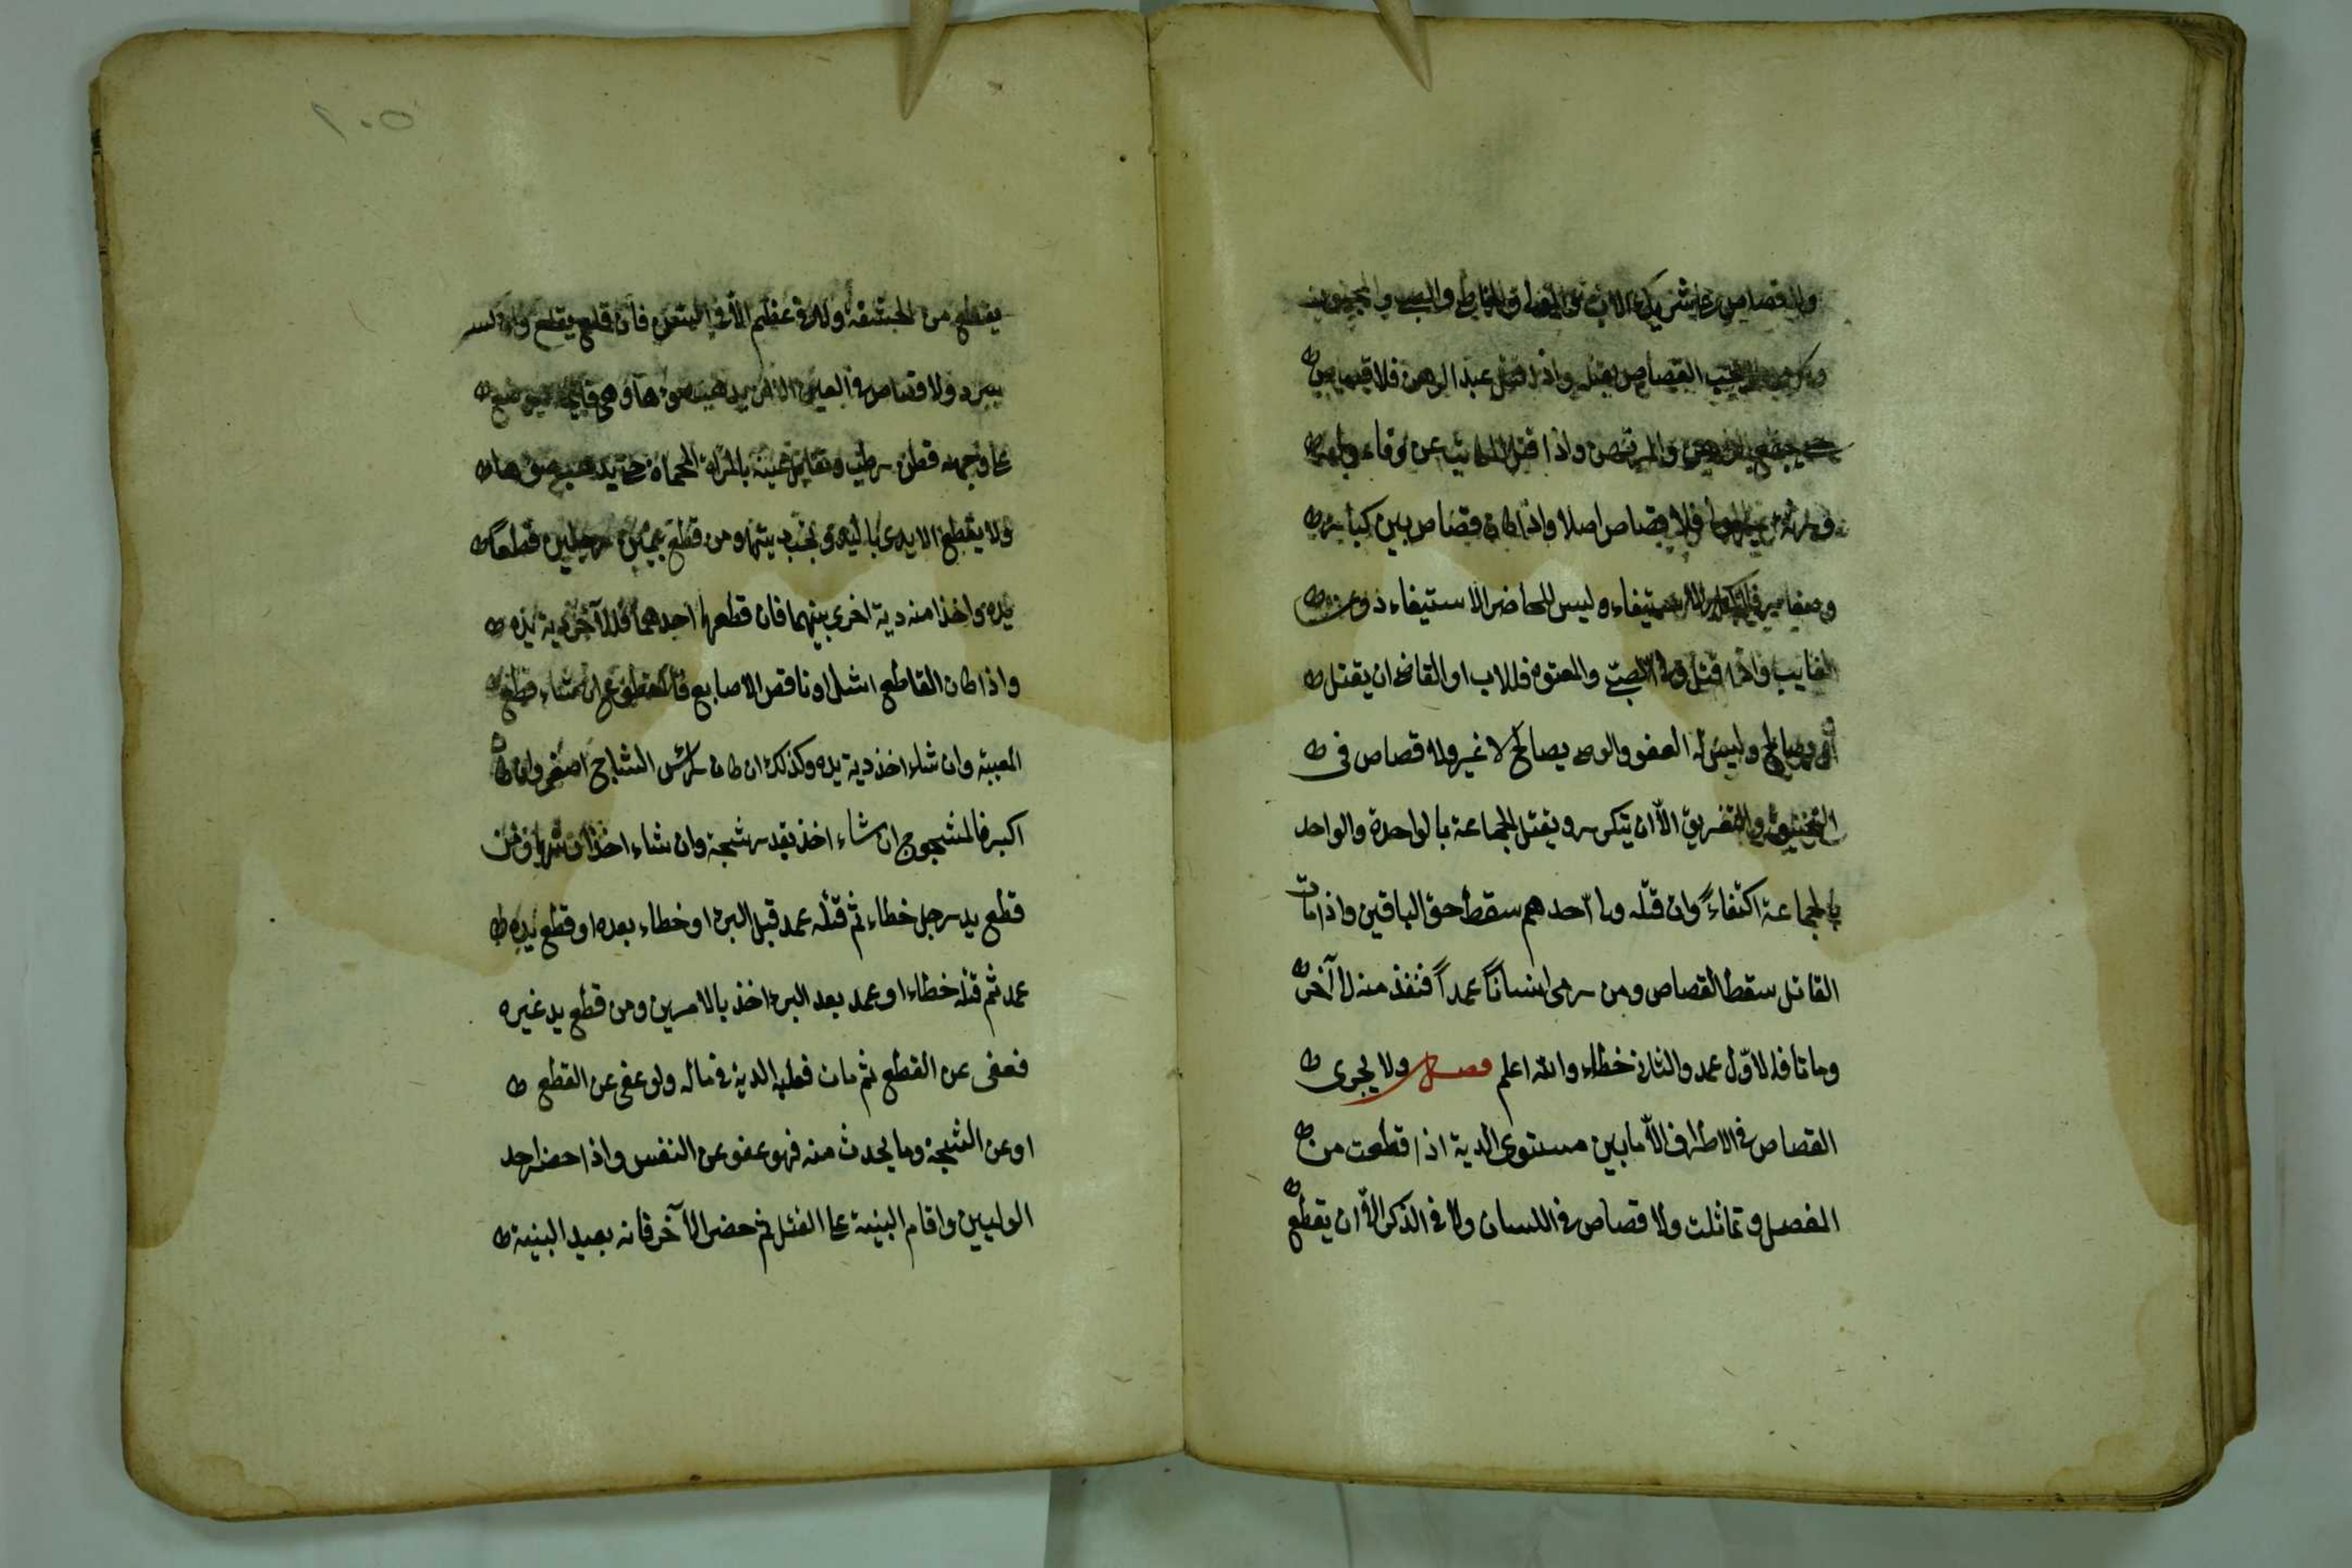 ولا قصاص على شريك الاب والمولى والخاطئ والصبي والمجنون
وكل من يجب القصاص بقتله واذا قتل عبد الرهن فلا قصاص
حتى يجتمع الراهن والمرتهن واذا قتل المكاتب عن وفاء وله
ورثة غير المولى فلا قصاص اصلا واذا كان قصاص بين كبار
وصغار فللكبار الاستيفاء وليس للحاضر الاستيفاء دون
الغايب واذا قتل ولى الصبي والمعتوه فللاب او القاضى ان يقتل
او يصالح وليس له العفو والوصى يصالح لا غير ولا قصاص فى
التخنيق والتغريق الا ان يتكرر ويقتل الجماعة بالواحدة والواحد
بالجماعة اكتفاءً وان قتله ولى احدهم سقط حق الباقين واذا مات
القاتل سقط القصاص ومن رمى انساناً عمداً فنفذ منه الى آخر
وماتا فالاوّل عمد والثانى خطاء والله اعلم فصل ولا يجرى
القصاص فى الاطراف الا ما بين مستوى الدية اذا قطعت من
المفصل وتماثلت ولا قصاص فى اللسان ولا فى الذكر الا ان يقطع
٢٠٥
يقطع من الحشفة ولا فى عظم الا فى السن فان قلع يقلع وان كسر
يبرد ولا قصاص فى العين الا ان يذهب ضوءها وهى قايمة فيوضع
على وجهه قطن رطب وتقابل عينه بالمرآة المحماة حتى يذهب ضوءها
ولا يقطع الايدى باليد وتجب ديتها ومن قطع يمينى رجلين قطعا
يده واخذا منه دية اخرى بينهما فان قطعها احدهما فللآخر دية يده
واذا كان القاطع اشل او ناقص الاصابع فالمقطوع ان شاء قطع
المعيبة وان شاء اخذ دية يده وكذلك ان كان رأس الشاج اصغر وان كان
اكبر فالمشجوج ان شاء اخذ بقدر شجة وان شاء اخذ ارشها ومن
قطع يد رجل خطاء ثم قتله عمد قبل البرء او خطاء بعده او قطع يده
عمد ثم قتله خطاء او عمد بعد البرء اخذ بالامرين ومن قطع يد غيره
فعفى عن القطع ثم مات فعليه الدية فى ماله ولو عفى عن القطع
او عن الشجة وما يحدث منه فهو عفو عن النفس واذا حضر احد
الوليين واقام البينة على القتل ثم حضر الآخر فانه يعيد البينة